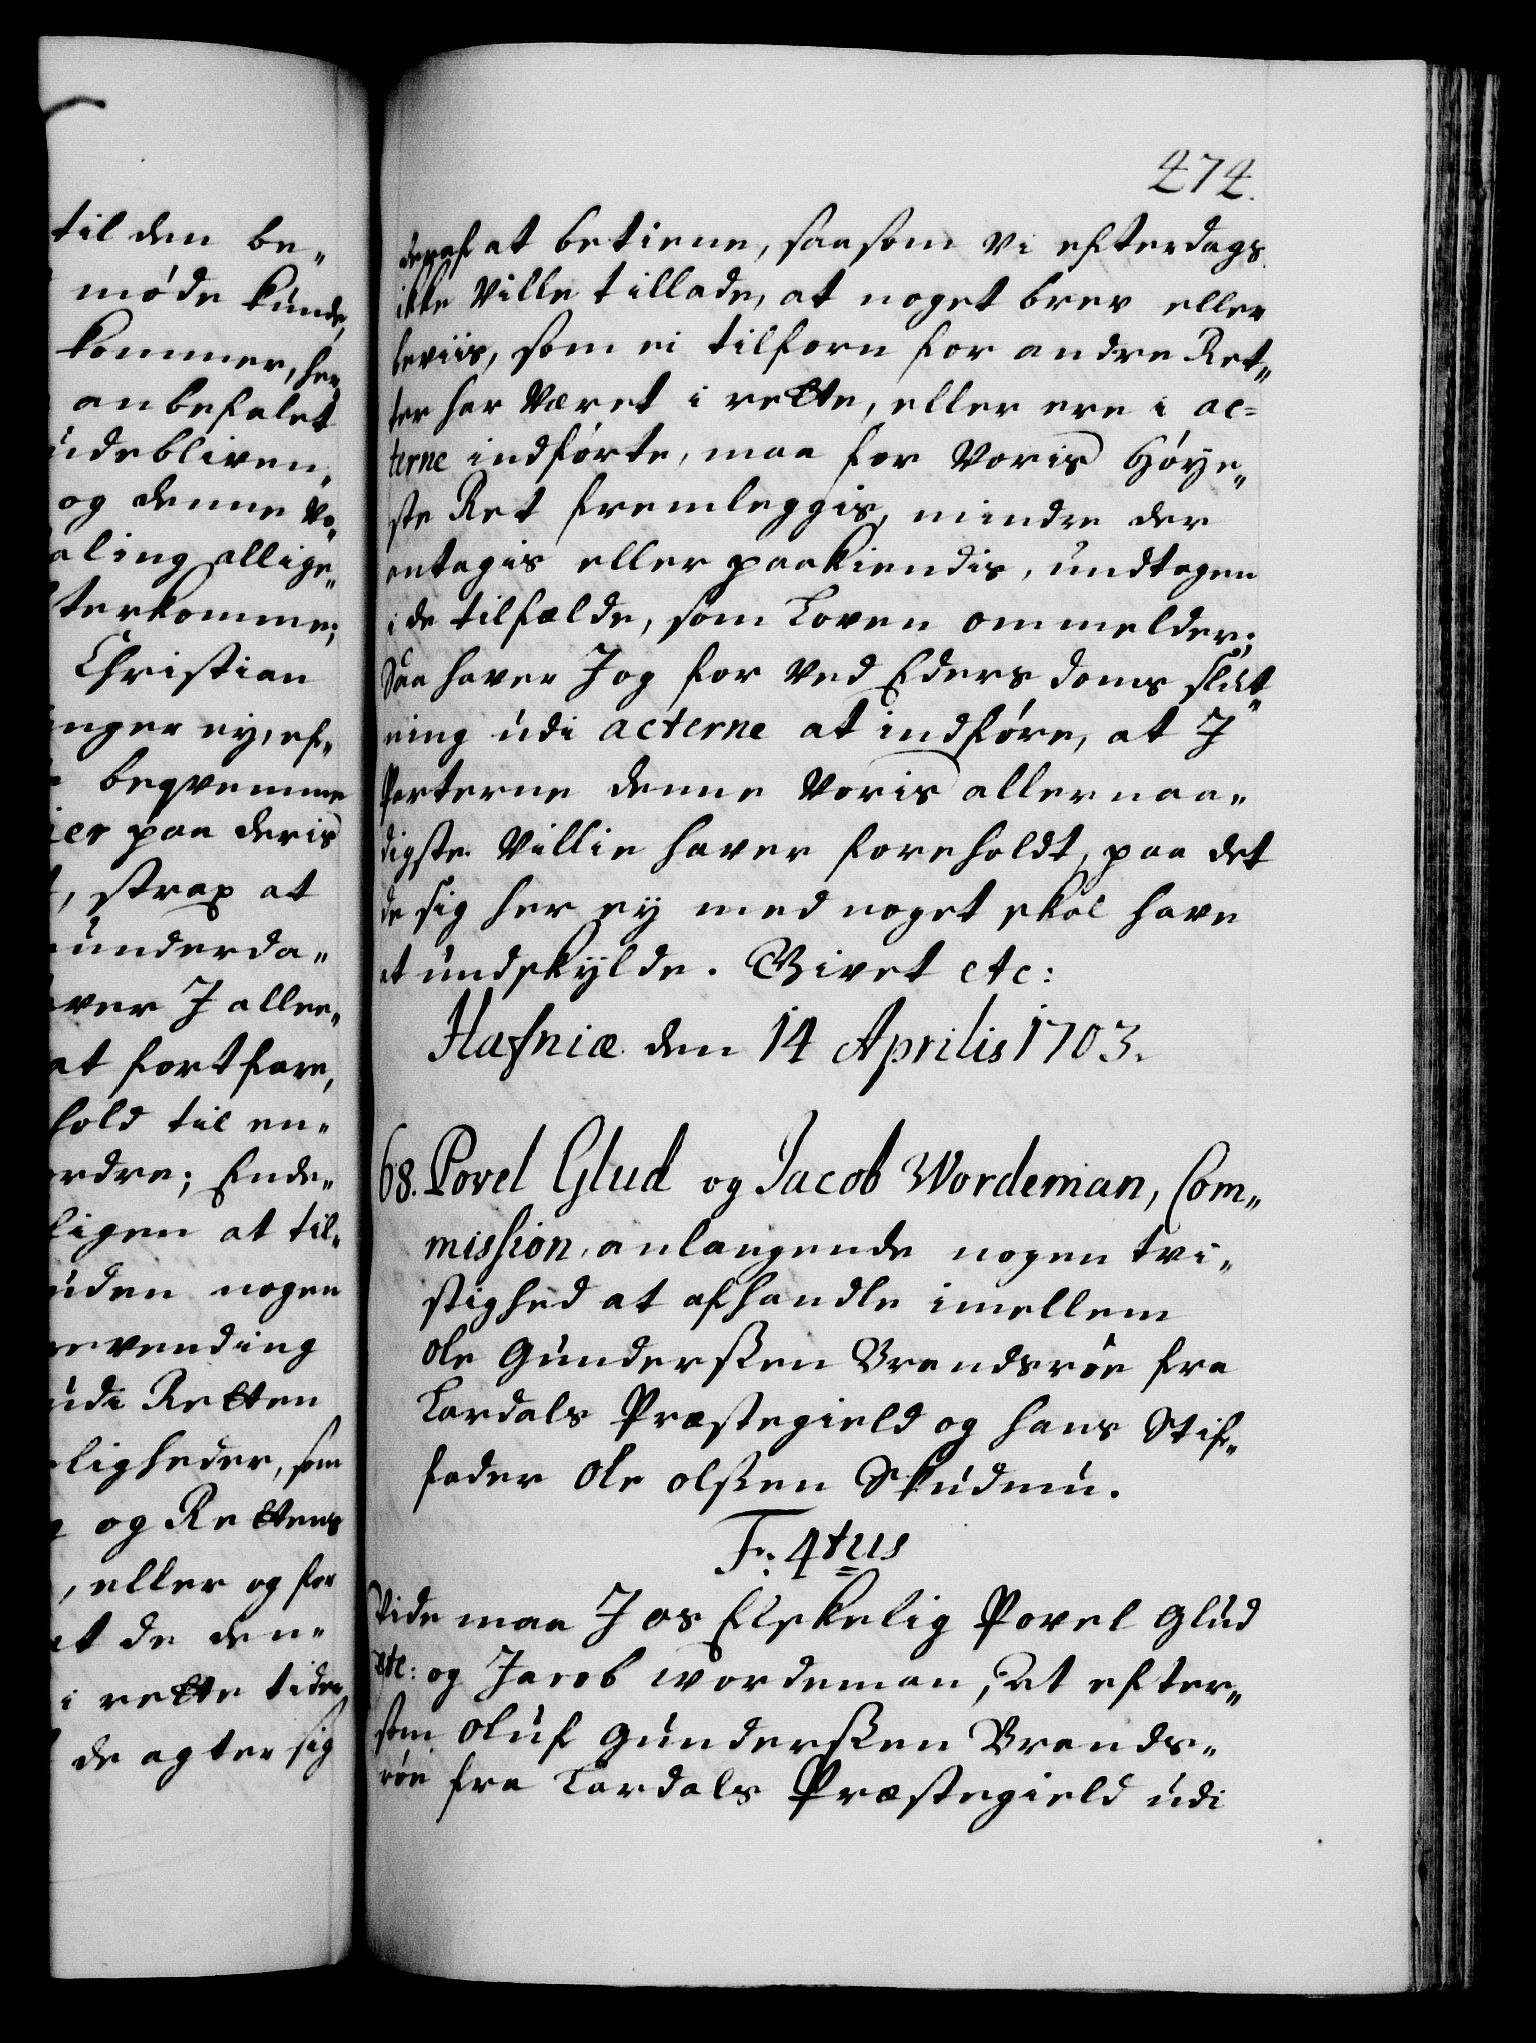 til den be„
møde kunde,
kommer, her
anbefalet
udebliven,
og denne vo„
aling allige„
terkomme;
Christian
nger ey, ef„
beqvemme
ier paa deris
, strax at
underda„
ver J aller„
at fortfare,
hold til en„
rdre; Ende„
ligen at til„
uden nogen
vending
udi Retten
ligheder, som
og Rettens
, eller og for
at de den„
i rette tider
de agter sig
474.
deraf at betiene, saasom Vi efterdags
ikke Ville tillade, at noget brev eller
beviis, som ei tilforn for andre Ret„
ter har Været i rette, eller ere i ac=
terne indførte, maa for Voris Høye„
ste Ret fremleggis, mindre der
antagis eller paakiendis, undtagen
i de tilfælde, som Loven ommelder;
Saa haver J og for Ved Eders doms slut„
ning udi acterne at indføre, at J
Parterne denne Voris allernaa„
digste Villie haver foreholdt, paa det
de sig her ey med noget skal have
at undskylde. Givet etc:
Hafniæ den 14 Aprilis 1703.
68. Povel Glud og Jacob Wordeman, Com„
mission, anlangende nogen tvi„
stighed at afhandle imellem
Ole Gunderssen Brandsrøe fra
Lardals Præstegield og hans Stif„
fader Ole olssen Skudmu.
Fr: 4tus
Vide maa J os Elskelig Povel Glud
etc: og Jacob wordeman, At efter„
som Oluf Gunderssen Brands„
røe fra Lardals Præstegield udi